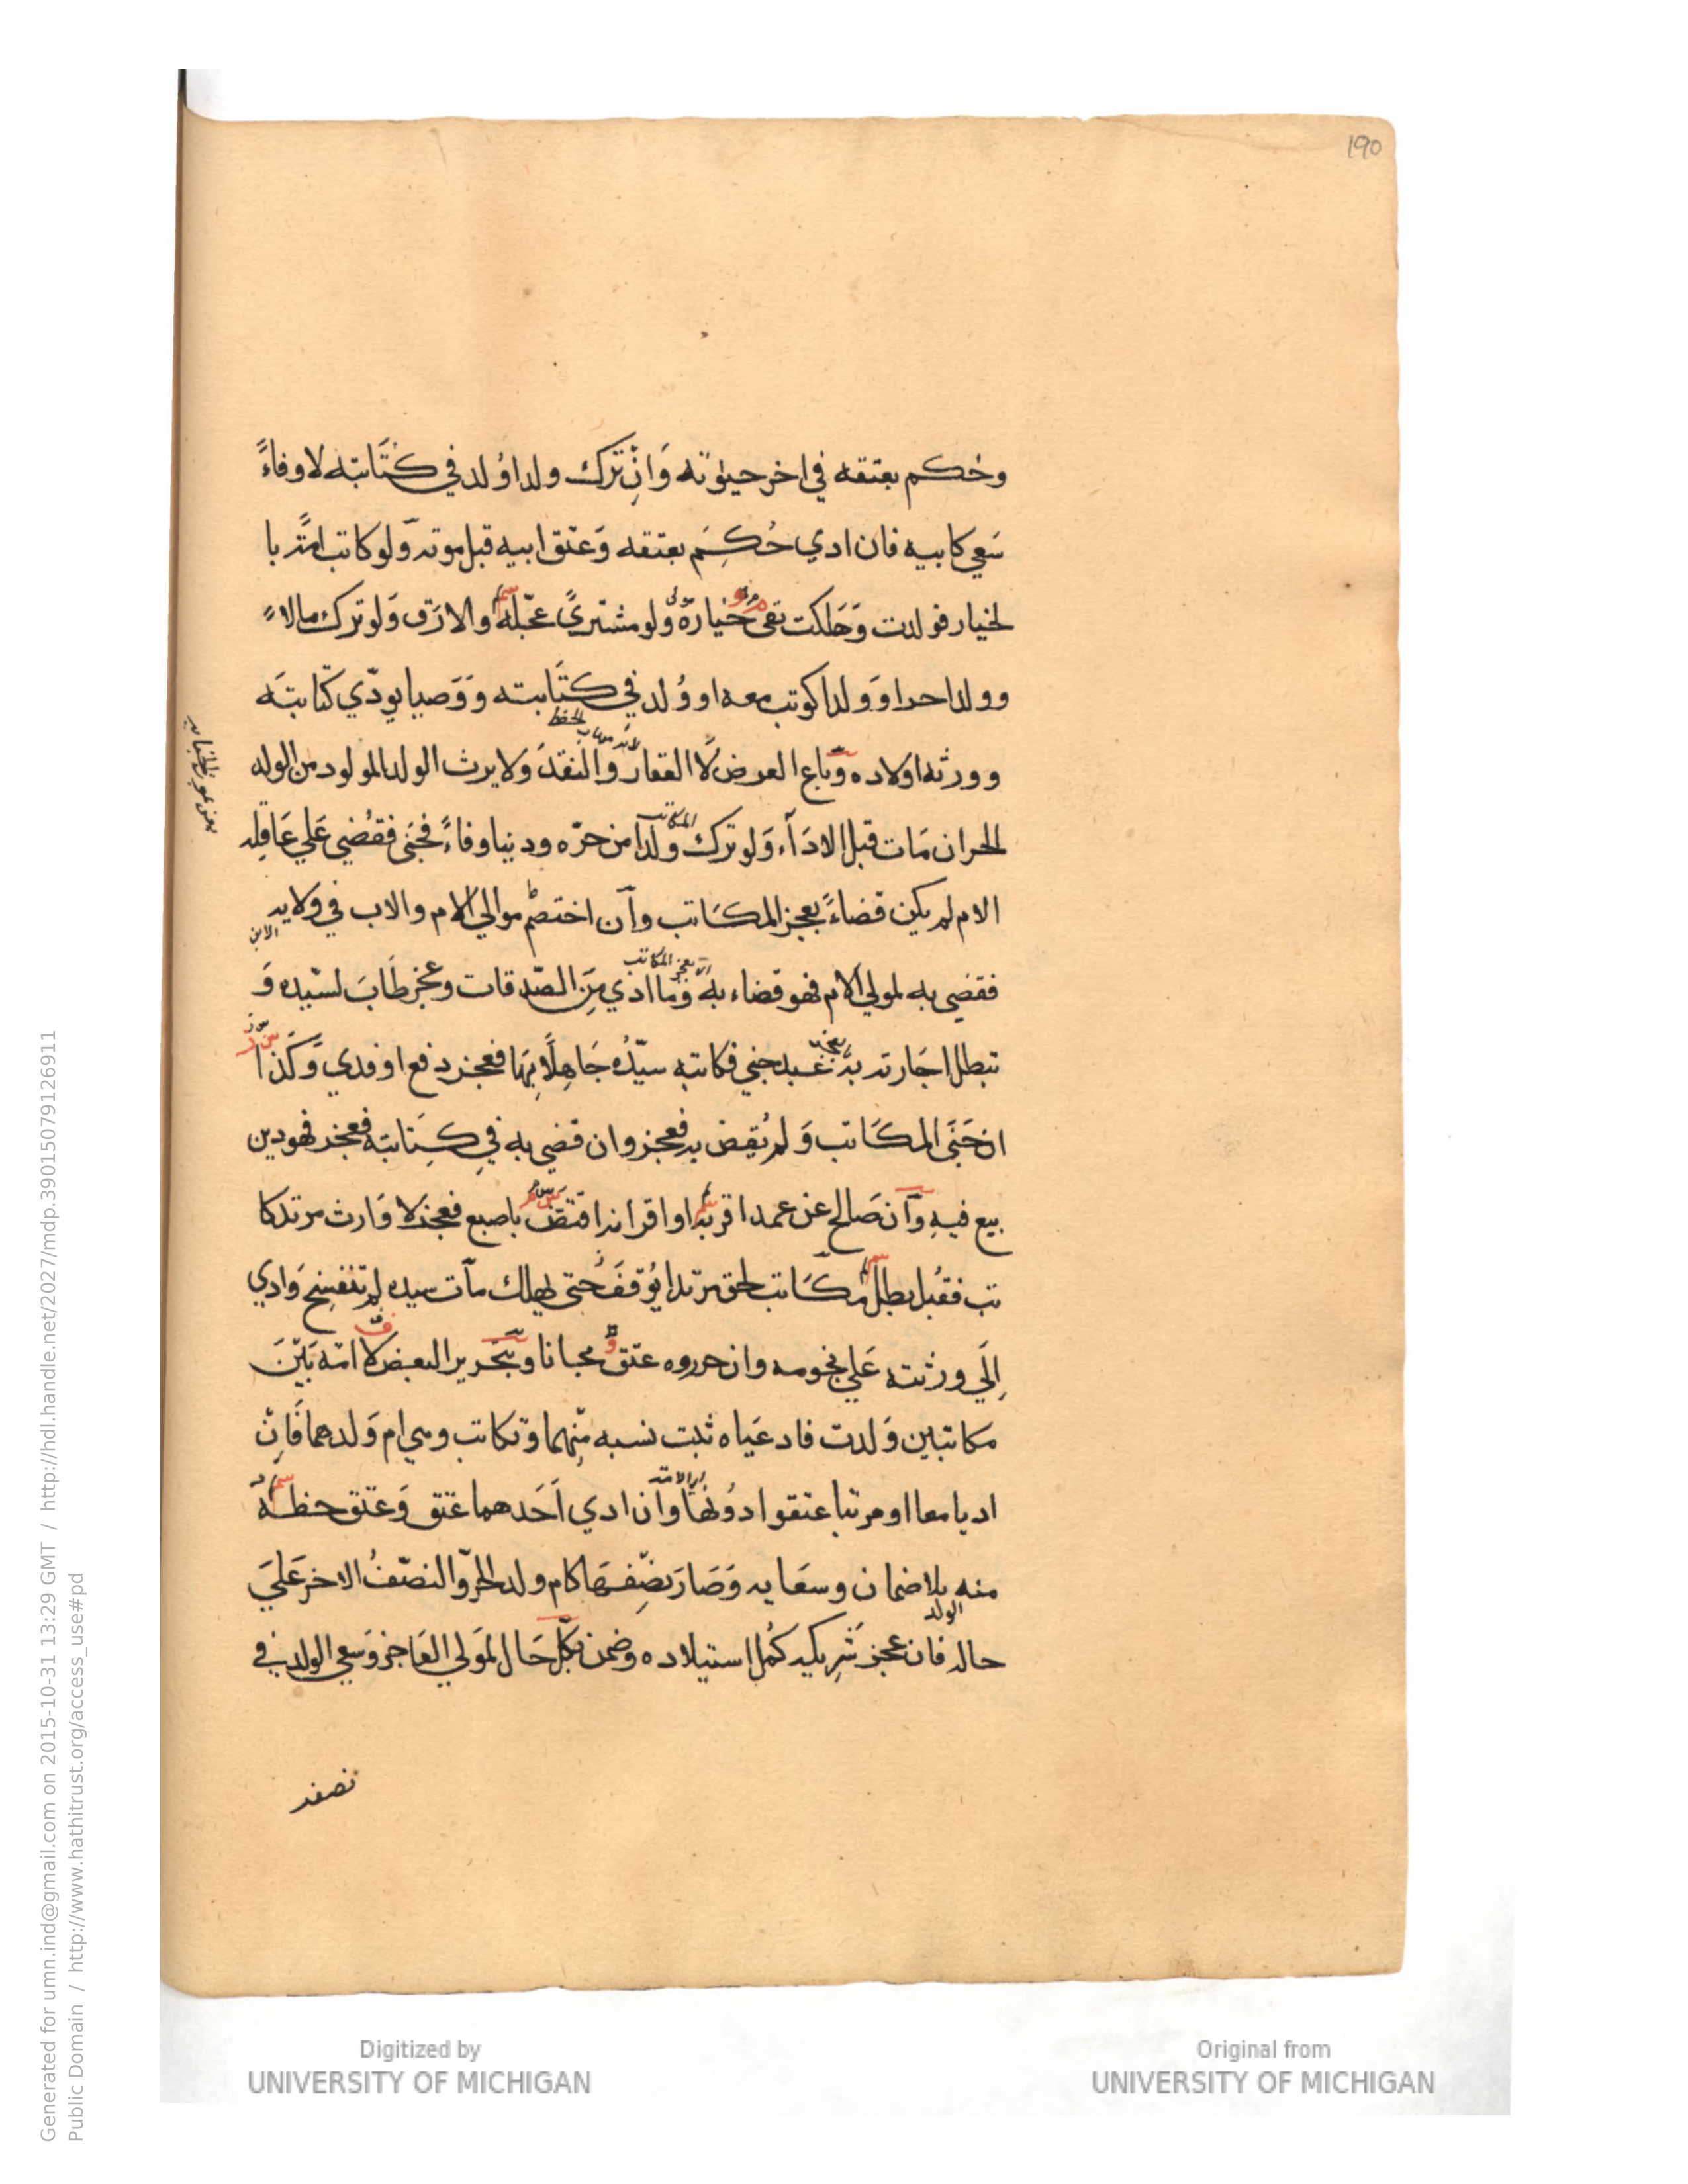 190
وحكم بعتقه في اخر حيوته وَانْ ترك ولدا وُلد في كتَابته لا وفاءً
سَعي كابيه فان ادي حُكِمَ بعتقه وَعتق ابيه قبل موته وَلو كاتب امَته با
لخيار فولدت وَهَلكت بقي خياره وَلو مشتريً عجّله والا رَق وَلو ترك مالاً
وولدا حرا وَولدا كوتب معه او وُلد في كتَابته وَوَصيا يودّي كتابتَه
وورثه اولاده وَباع العرض لَا العقار والنقدَ وَلا يرث الولد المولود من الوله
الحر ان مَات قبل الادَآء وَلو ترك ولدا من حرّه ودينا وفاءً فجَنى فقُضي عَلي عَاقله
الام لم يكن قضاءً بعجز المكَاتب وآن اختصم موالي الام والاب في ولايه
الابن
فقضي به لمولي الام فهو قضاء به وَما ادي مِنَ الصّدقات وعجز طَابَ لسيّده وَ
تبطل اجَارته به عَبد جني فكاتبه سيّدُه جَاهِلًا بِهَا فعجز دفع او فدي وَكَذا
ان جَنَى المكَاتب وَلم يُقض به فعجز وان قضي به في كِتابته فعجز فهو دين
بيع فيه وآن صَالح عن عمد اقر به او اقر انه اقتض باصبع فعجز لا وَارث مرتد كا
تب فقُبل بطل مكَاتب لحق مرتدا يُوقفَ حتى يهلك مآت سيده لم تنفسخ وَادي
اِلَي ورثته عَلي نجومه وان حرروه عتق مجانا وبتَحرير البعض لا امَة بَيْنَ
مكاتبين وَلدت فادعَياه ثبت نسبه مِنهما وَتكاتب وهي ام وَلدهما فَاِنْ
اديا معا او مرتبا عتقوا دُونها وَان ادي اَحَدهما عَتق وَعتق حظه
منه بلا ضمان وسعَايه وَصَارَ نصْفهَا كام ولد الحرّ والنصّفُ الاخر عَليَ
حاله فان عجز شَرِيكه كمُل استيلاده وضمن بكل حَال لموَلي العَاجز وَسعي الولد في
نصفه
Generated for umn.ind@gmail.com on 2015-10-31 13:29 GMT / http://hdl.handle.net/2027/mdp.39015079126911
Public Domain / http://www.hathitrust.org/access_use#pd
Digitized by
UNIVERSITY OF MICHIGAN
Original from
UNIVERSITY OF MICHIGAN